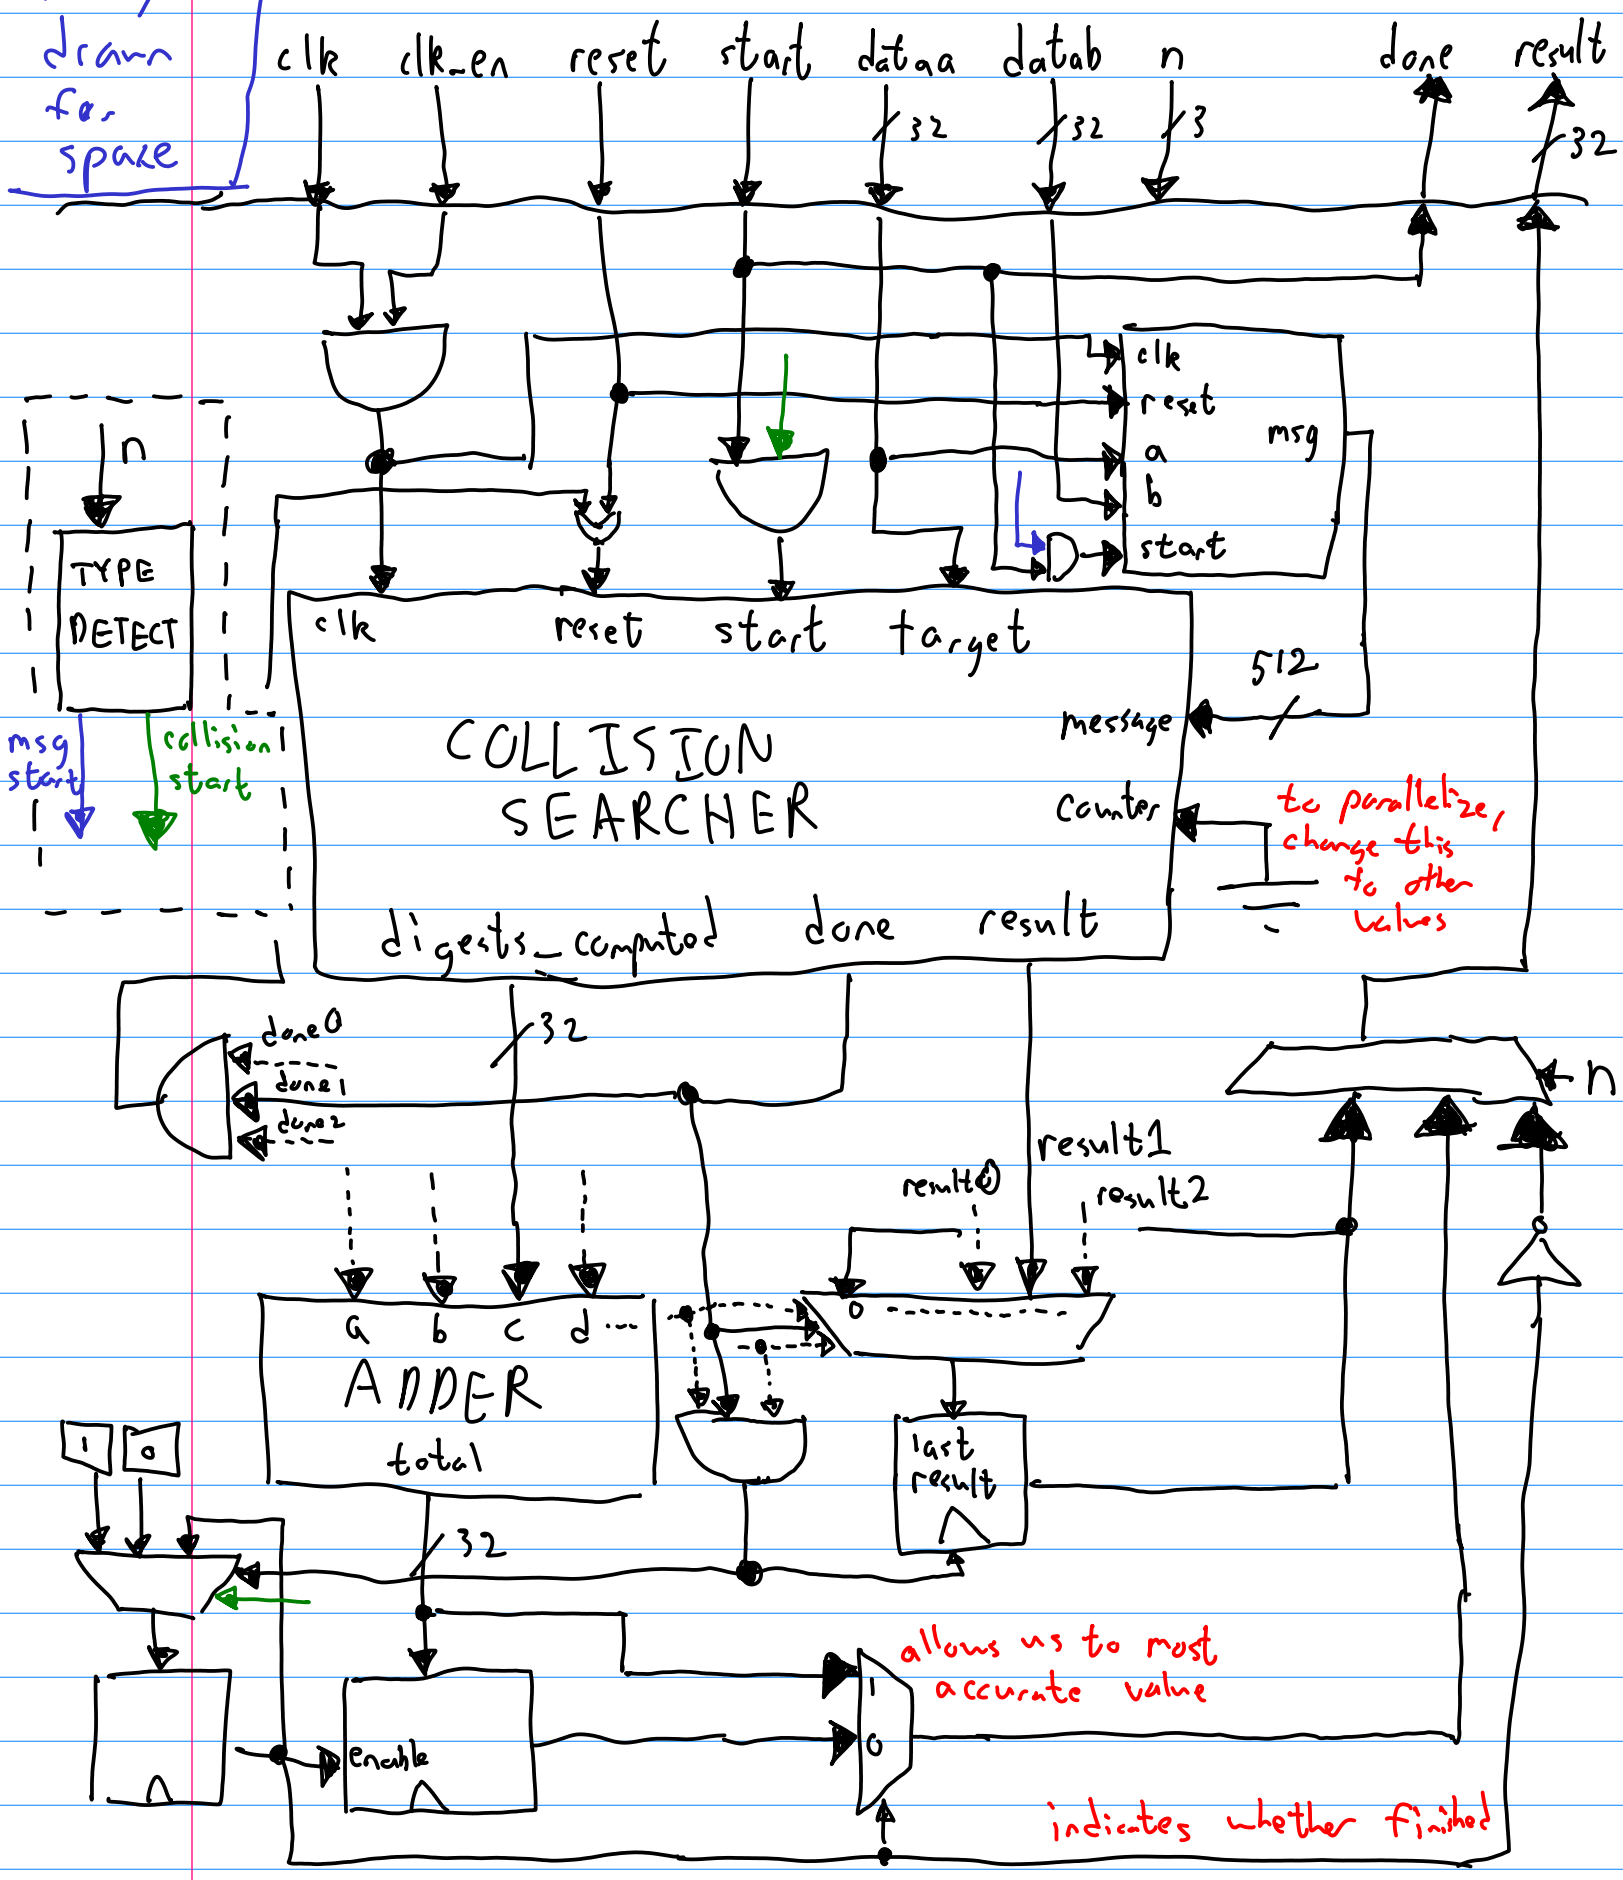 drawn
for
space
clk clk_en reset start dataa datab n done result
32 32 3 32
clk
reset
msg
a
b
start
n
TYPE
DETECT
msg
start
collision
start
clk reset start target
512
message
COLLISION
SEARCHER
counter
to parallelize,
change this
to other
values
digests_computed done result
32
done0
done1
done2
n
result0 result1 result2
0
a b c d ....
ADDER
total
last
result
1 0
32
allows us to most
accurate value
1
0
enable
indicates whether finished